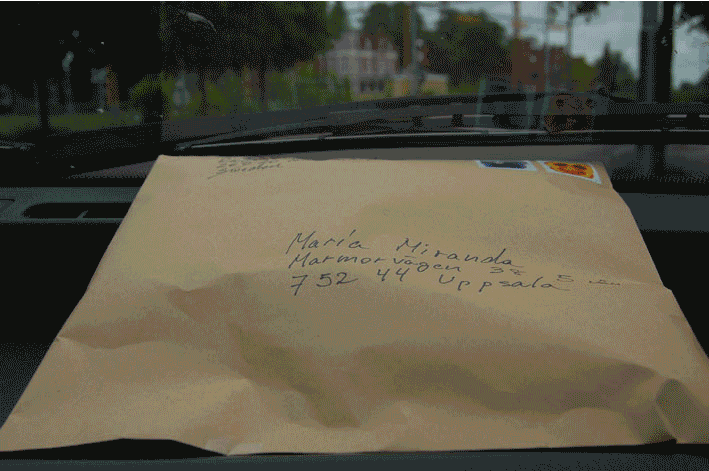 Sweden
María Miranda
Marmorvägen
752 44 Uppsala